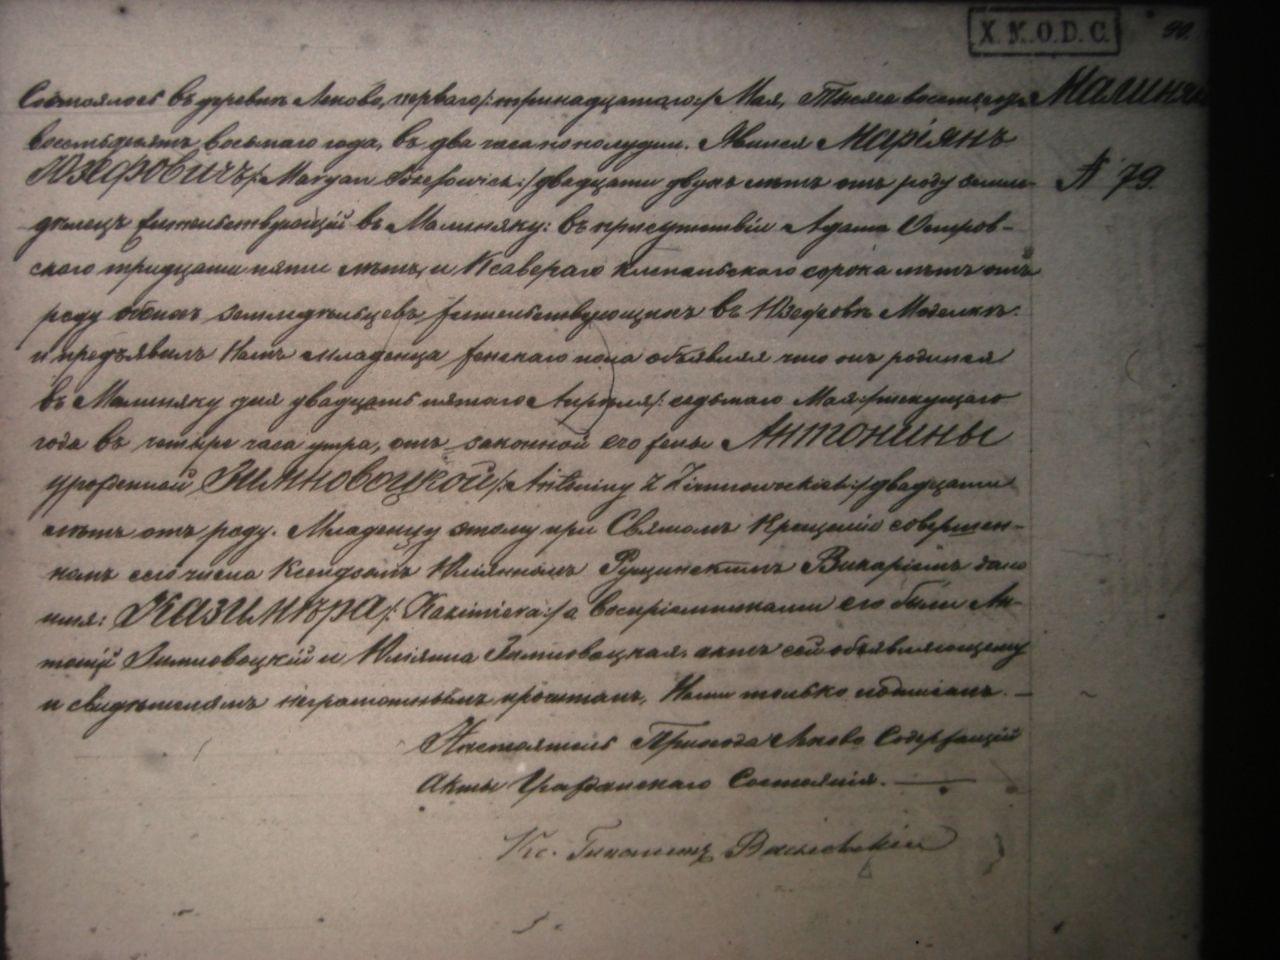 X. K. O. D. C. 90.
Состоялось въ деревнѣ Леково, перваго /: тринадцатаго :/ Мая, Тысяча восемьсотъ
восемьдесятъ восьмаго года, въ два часа пополудни. Явился Маріянъ
Юзефовичъ /: Maryan Józefowicz :/ двадцати двухъ лѣтъ отъ роду земле-
дѣлецъ жительствующій въ Малиняку: въ присутствіи Адама Остров-
скаго тридцати пяти лѣтъ, и Ксавераго сорока лѣтъ отъ
роду обоихъ земледѣльцевъ жительствующихъ въ Юзефовѣ
и предъявилъ Намъ младенца женскаго пола объявляя что онъ родился
въ Малиняку дня двадцать пятаго Апрѣля /: седьмаго Мая :/ текущаго
года въ четыре часа утра, отъ законной его жены Антонины
урожденной Зимновоцкой /: Antoniny z Zimnowockich :/ двадцати
лѣтъ отъ роду. Младенцу этому при Святомъ Крещеніи совершен-
номъ сего числа Ксендзомъ Юліянномъ Викаріемъ дано
имя: Казимѣра /: Kazimiera :/ а воспріемниками его были Ан-
тоній Зимновоцкій и Юліянна Зимновоцкая. актъ сей объявляющему
и свидѣтелямъ неграмотнымъ прочитанъ, Нами только подписанъ. —
Настоятель Прихода Леково Содержащій
Акты Гражданскаго Состоянія. —
Кс.
Малинякъ
№ 79.